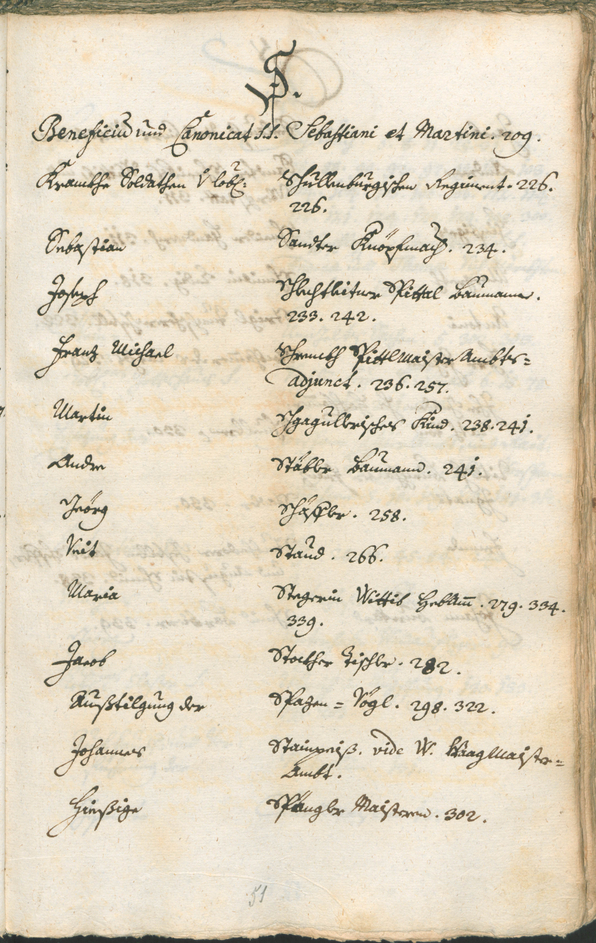 S.
Beneficiu und Canonicat S.S. Sebastiani et Martini. 209.
Krankhe Soldathen Schullenburgischen Regiment. 226.
226.
Sebastian Sandter Knöpfmach. 234.
Joseph Schlechtleitner Spittal Baumann.
233. 242.
Frantz Michael Schrenkh Spitlmaister Ambts=
adjunct. 236. 257.
Martin Kind. 238. 241.
Andre Stäbler Baumann. 241.
Jeörg Schäffler. 258.
Veit Staud. 266.
Maria Stegerin Wittib Hebamm. 279. 334.
339.
Jacob Stocker Tischler. 282.
Außtilgung der Spazen= Vögl. 298. 322.
Johannes Stainpeiß. vide W. Waagmaister=
Ambt.
Hiesige Spängler Maistern. 302.
51